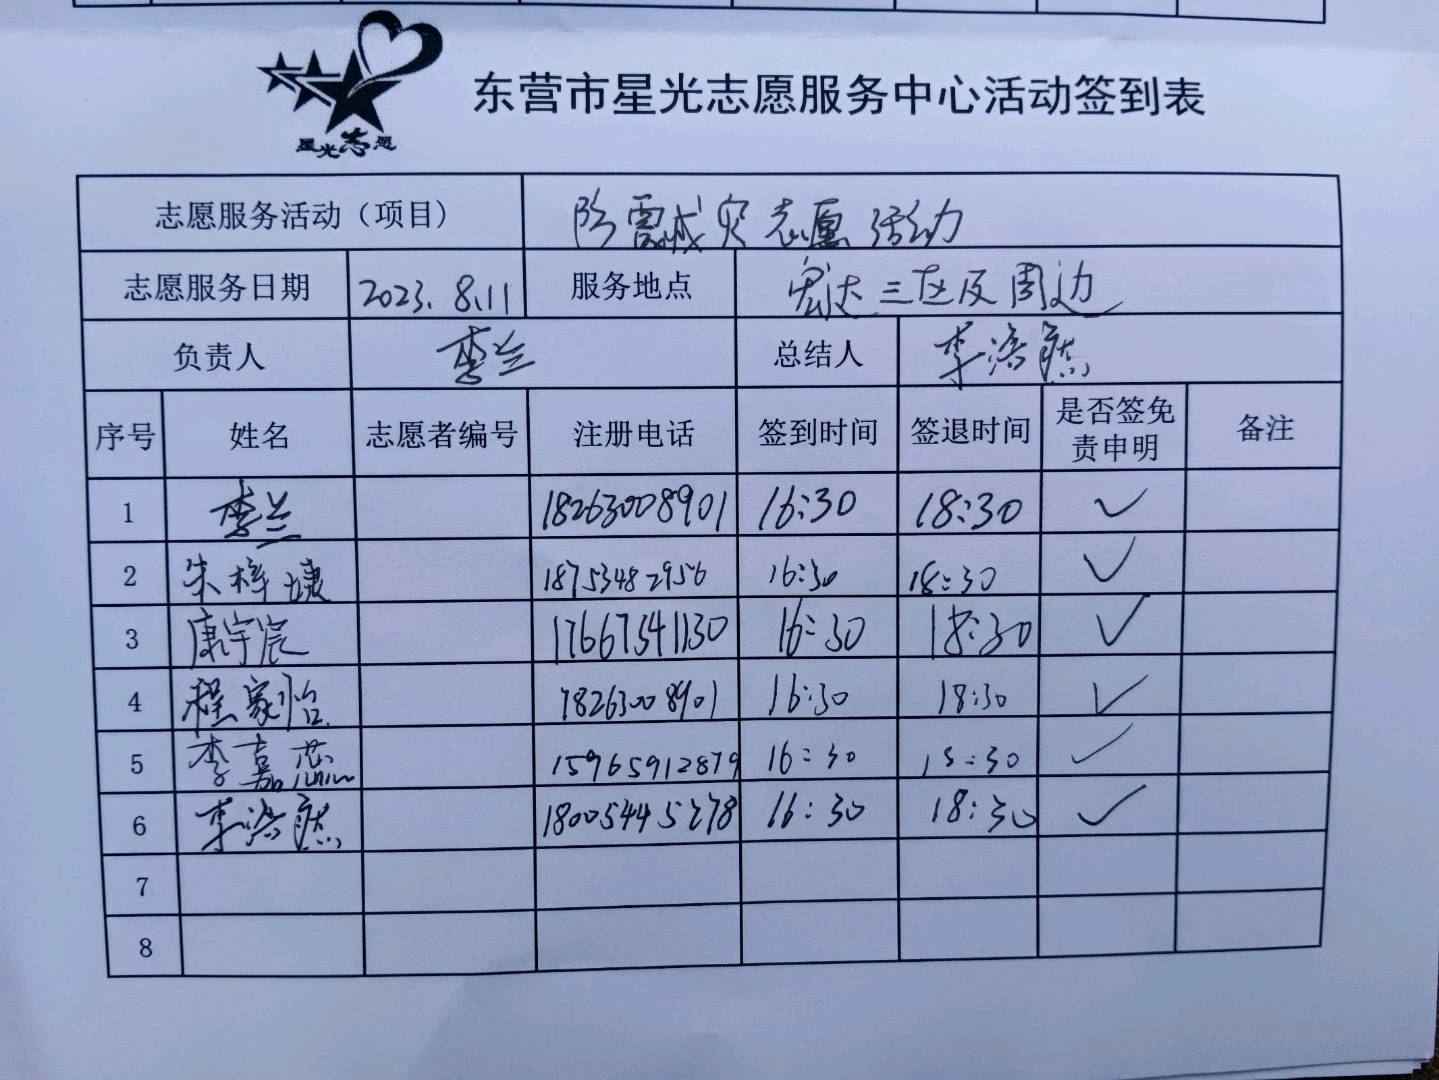 星光志愿
东营市星光志愿服务中心活动签到表
志愿服务活动（项目） 防震减灾志愿活动
志愿服务日期 2023.8.11 服务地点 宏达三区及周边
负责人 李兰 总结人 李浩然
序号 姓名 志愿者编号 注册电话 签到时间 签退时间 是否签免责申明 备注
1 李兰 18263008901 16:30 18:30 ✓
2 朱梓 18753482956 16:30 18:30 ✓
3 康宇宸 17667541130 16:30 18:30 ✓
4 程家怡 18263008901 16:30 18:30 ✓
5 李嘉芯 15965912879 16:30 18:30 ✓
6 李浩然 18005445278 16:30 18:30 ✓
7
8